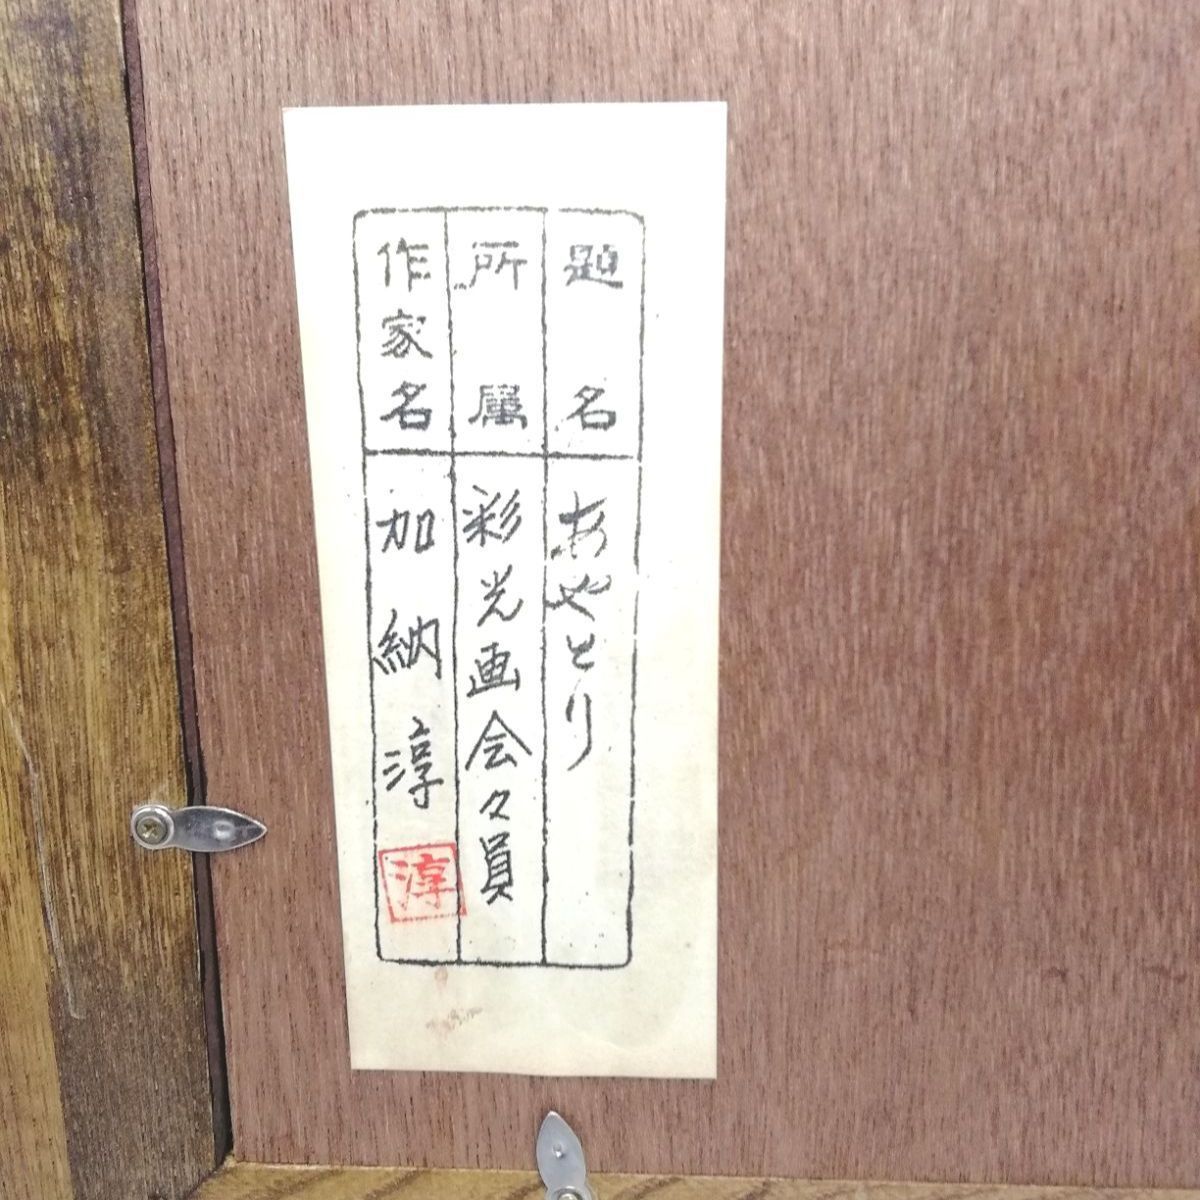 題名 あやとり
所属 彩光画会々員
作家名 加納淳
淳